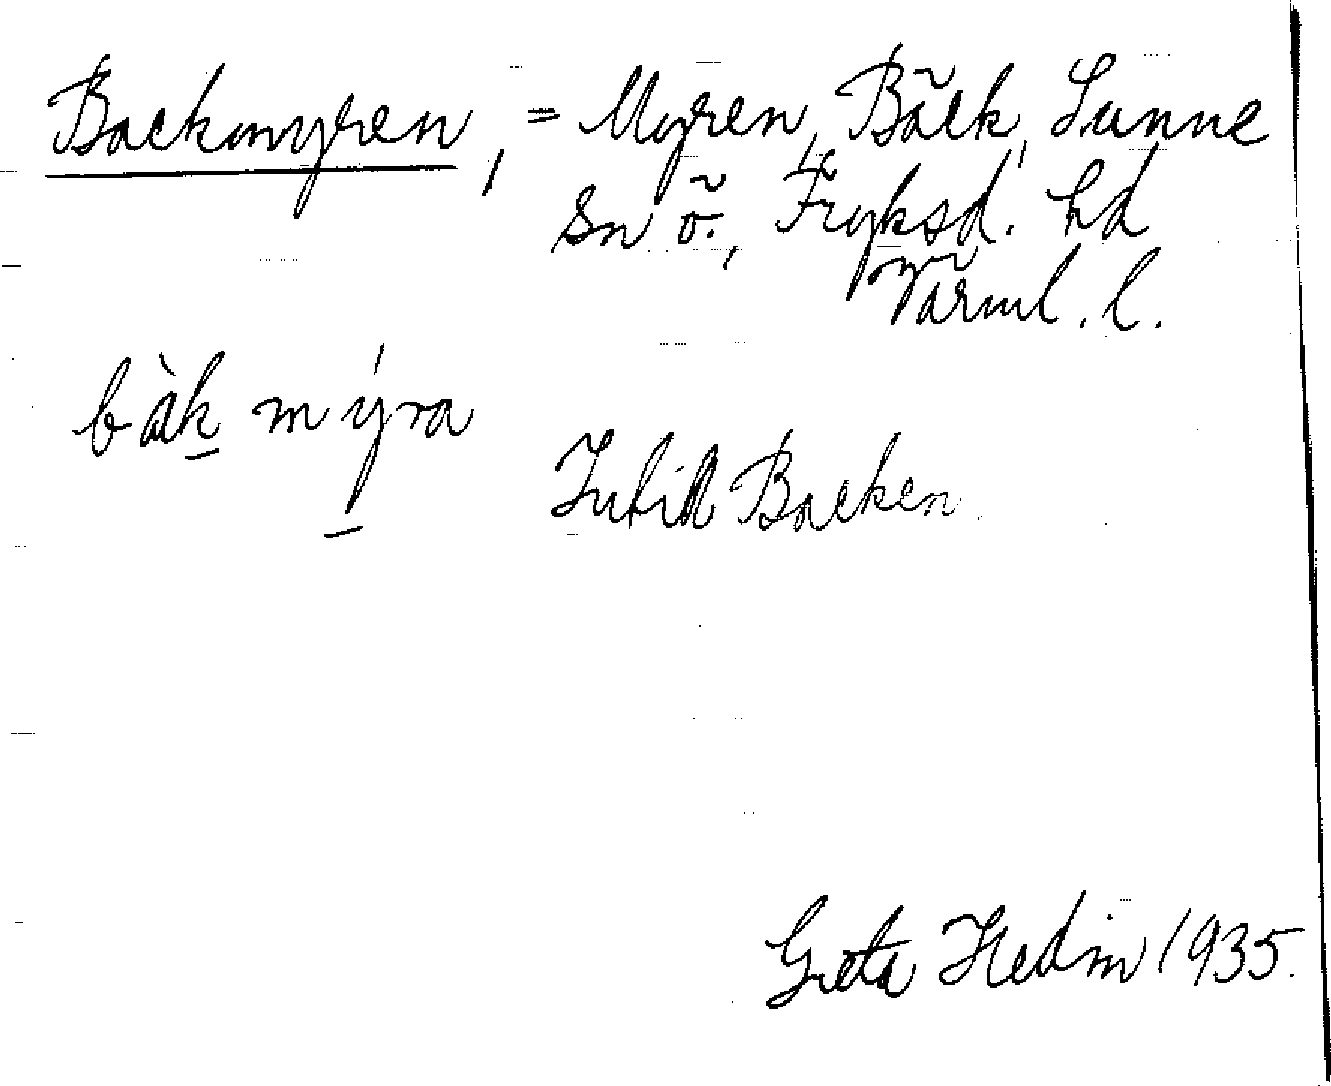 Backmyren, = Myren, Bäck, Sunne
sn ö., Fryksd. hd
Värml. l.
bàk mýra
Intill Backen.
Greta Hedin 1935.